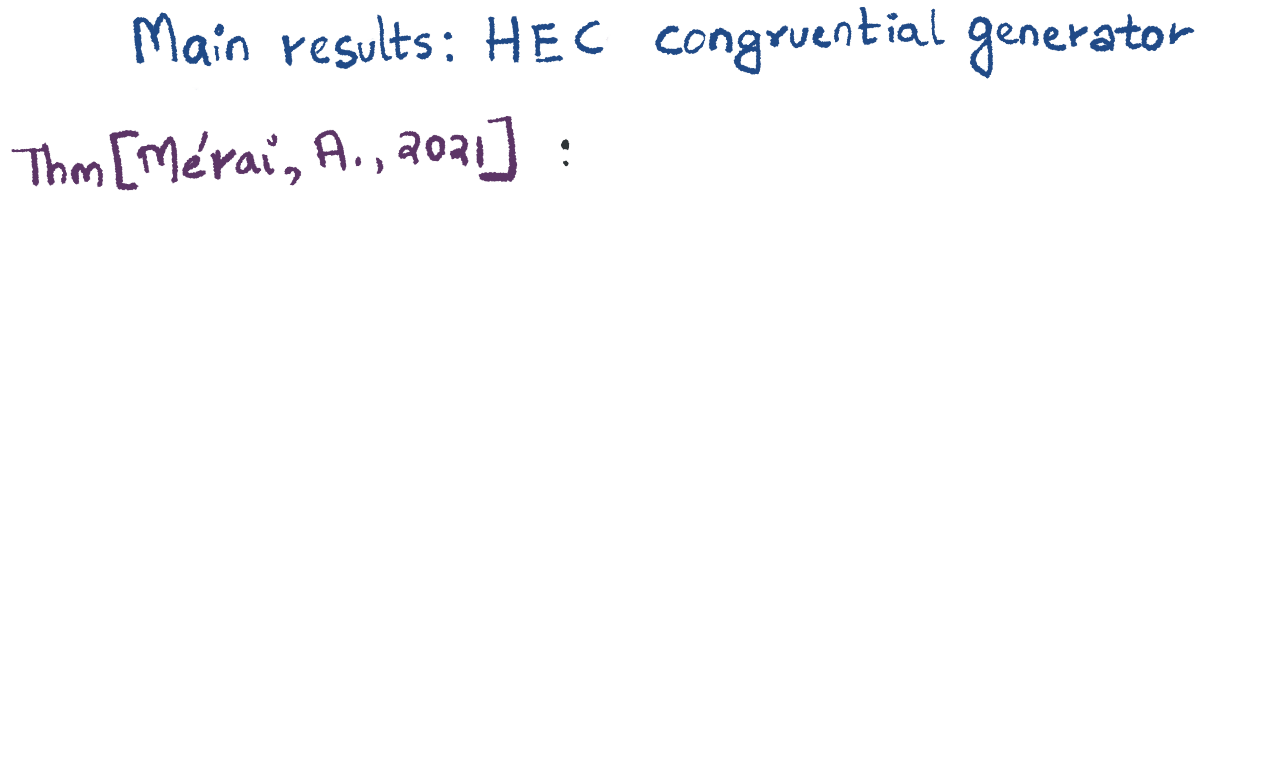 Main results: HEC congruential generator
Thm [Mérai, A., 2021] :